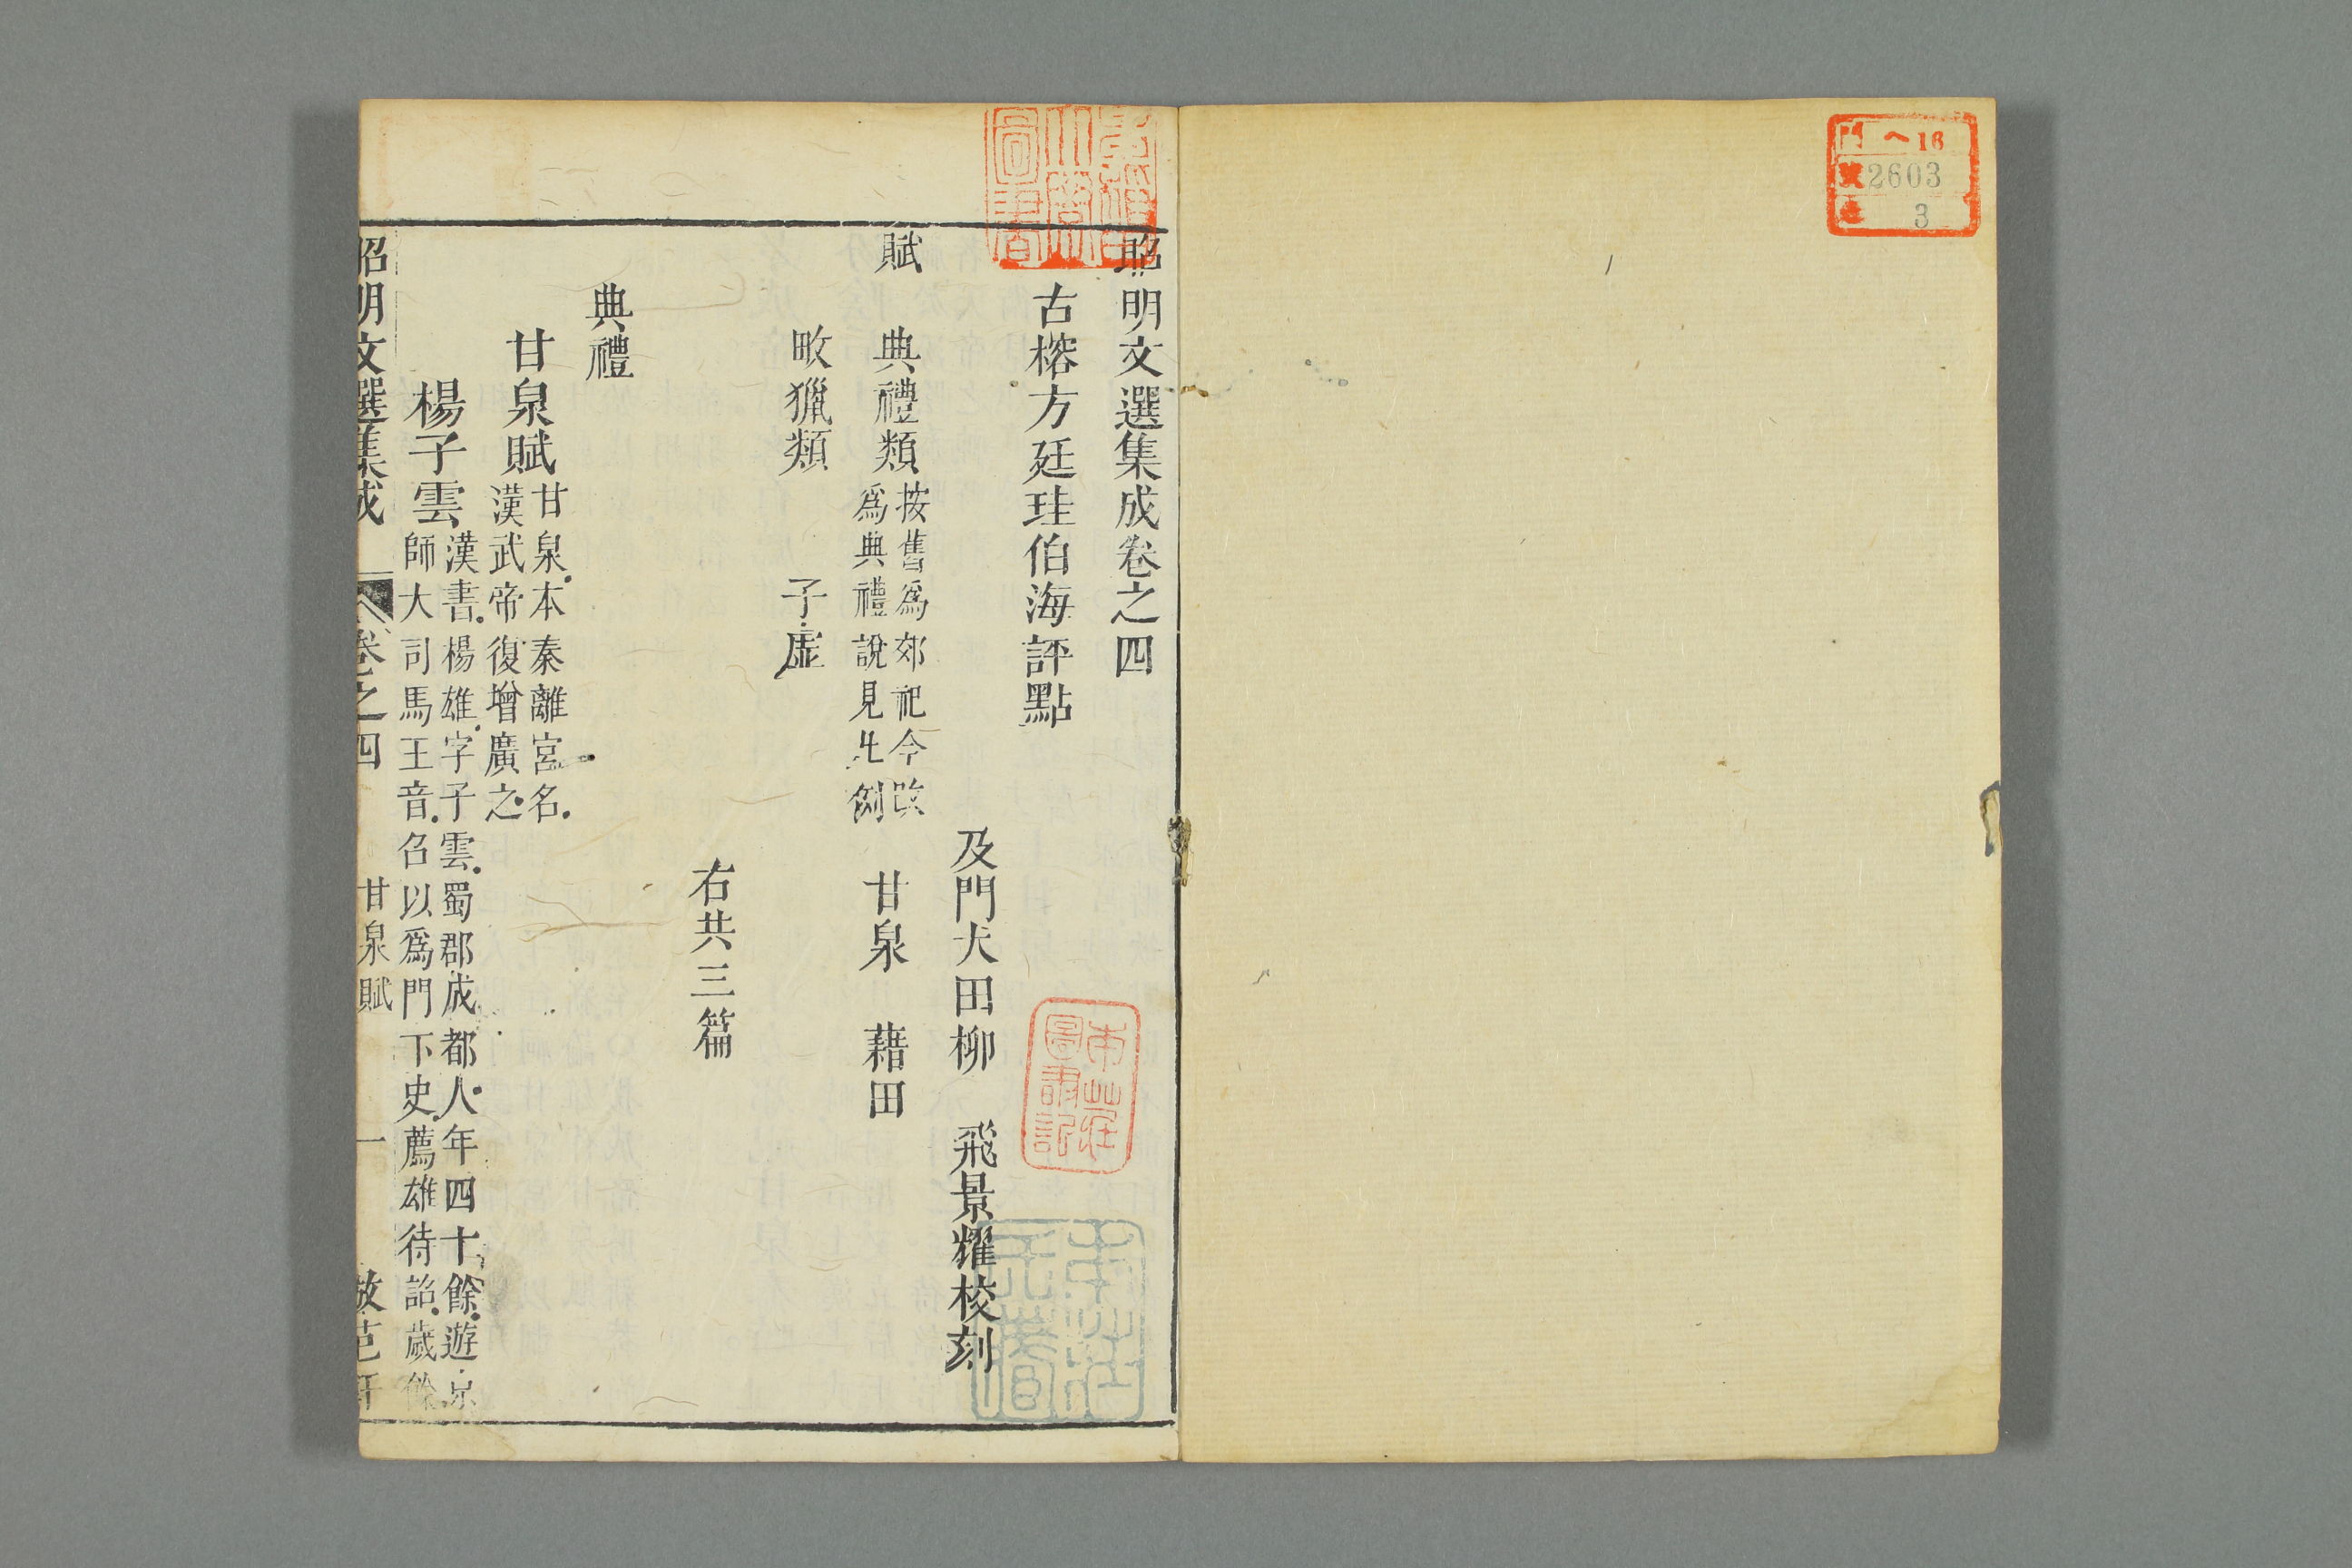 門 ヘ16
號 2603
卷 3
昭明文選集成卷之四
古榕方廷珪伯海評點
及門犬田柳 飛景耀校刻
賦 典禮類 按舊為郊祀今改為典禮說見凡例 甘泉 藉田
畋獵類 子虛
右共三篇
典禮
甘泉賦 甘泉本秦離宮名漢武帝復增廣之
楊子雲 漢書楊雄字子雲蜀郡成都人年四十餘遊京師大司馬王音召以爲門下史薦雄待詔歲餘
昭明文選集成 卷之四 甘泉賦 一 倣范軒
圖書
南莊圖書記